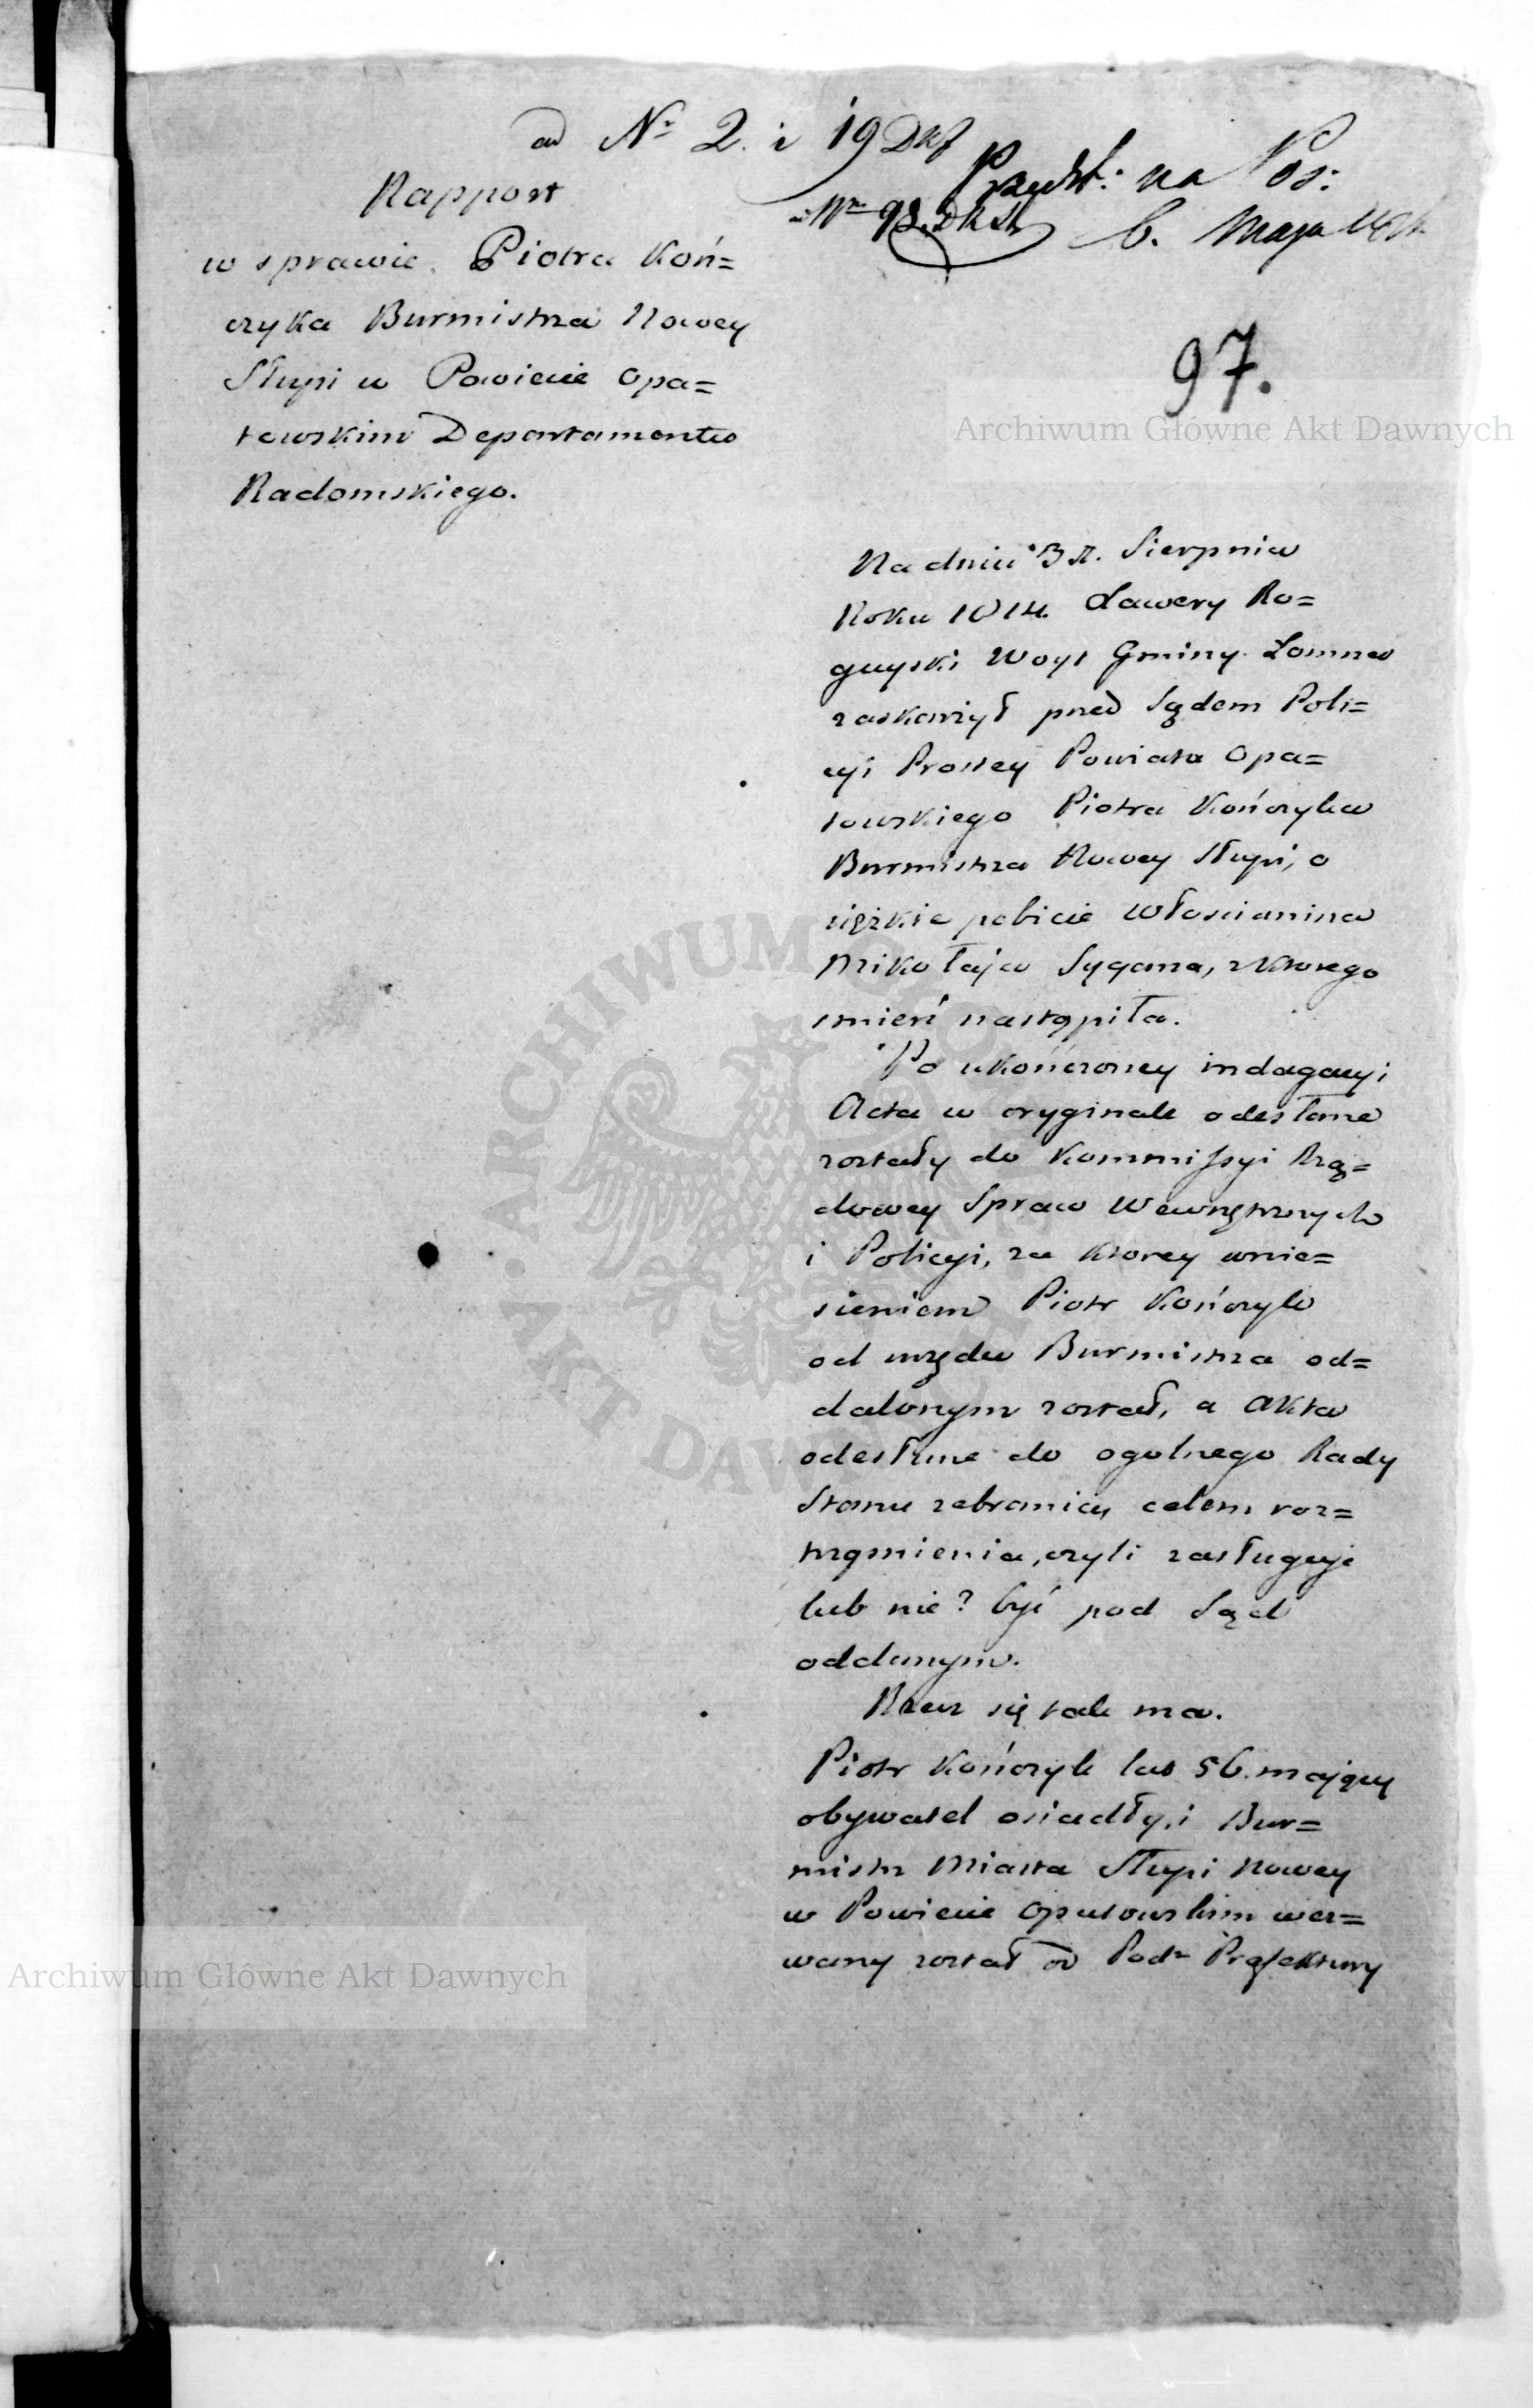 ad Nº 2. i 19 DKf
Przedst: na Pos:
ad Nr 93. DKSt
6. Maja
Rapport
w sprawie Piotra Koń=
czyka Burmistrza Nowey
Słupi w Powiecie Opa=
towskim Departamentu
Radomskiego.
97.
Archiwum Główne Akt Dawnych
Na dniu 31. Sierpnia
Roku 1814. Xawery Ro=
guyski Woyt Gminy Łomna
zaskarżył przed Sądem Poli=
cyi Prostey Powiatu Opa=
towskiego Piotra Kończyka
Burmistrza Nowey Słupi, o
ciężkie pobicie Włoscianina
Mikołaja Sygana, z ktorego
smierć nastąpiła.
Po ukończoney indagacyi
Acta w oryginale odesłane
zostały do Kommissyi Rzą=
dowey Spraw Wewnętrznych
i Policyi, za ktorey wnie=
sieniem Piotr Kończyk
od urzędu Burmistrza od=
dalonym został, a akta
odesłane do ogolnego Rady
Stanu zebrania, celem roz=
trząsnienia, czyli zasługuje
lub nie? być pod Sąd
oddanym.
Rzecz się tak ma.
Piotr Kończyk lat 56. mający
obywatel osiadły, i Bur=
mistrz Miasta Słupi Nowey
w Powiecie Opatowskim wez=
wany został od Pod= Prefektury
Archiwum Główne Akt Dawnych
ARCHIWUM GŁÓWNE
AKT DAWNYCH